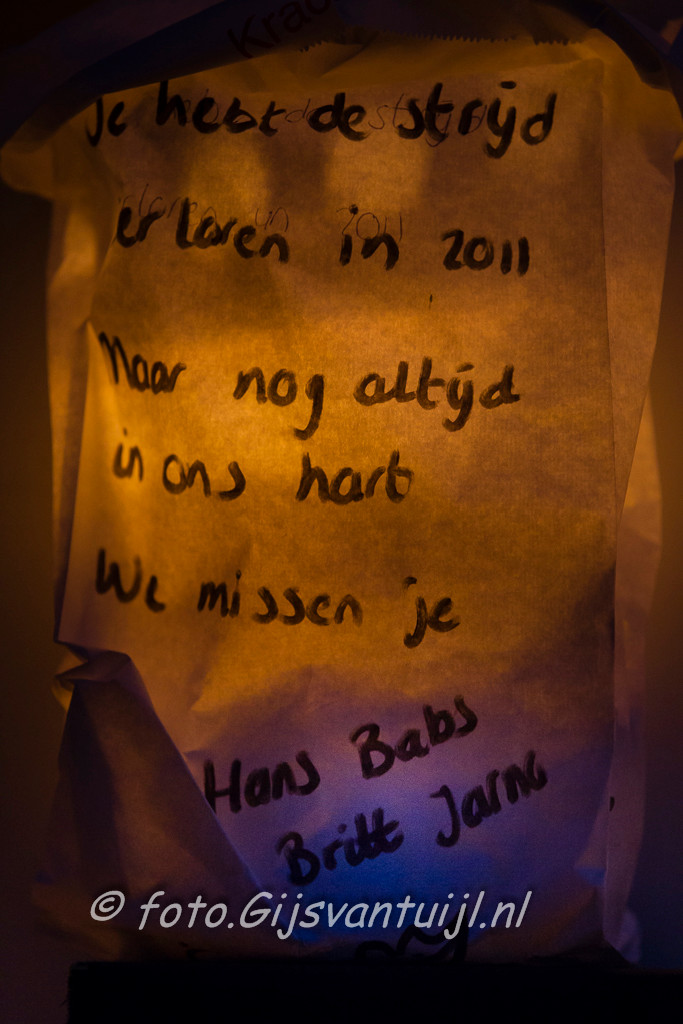 Je hebt de strijd
erloren in 2011
Maar nog altijd
in ons hart
We missen je
Hans Babs
Britt Jarno
© foto.Gijsvantuijl.nl